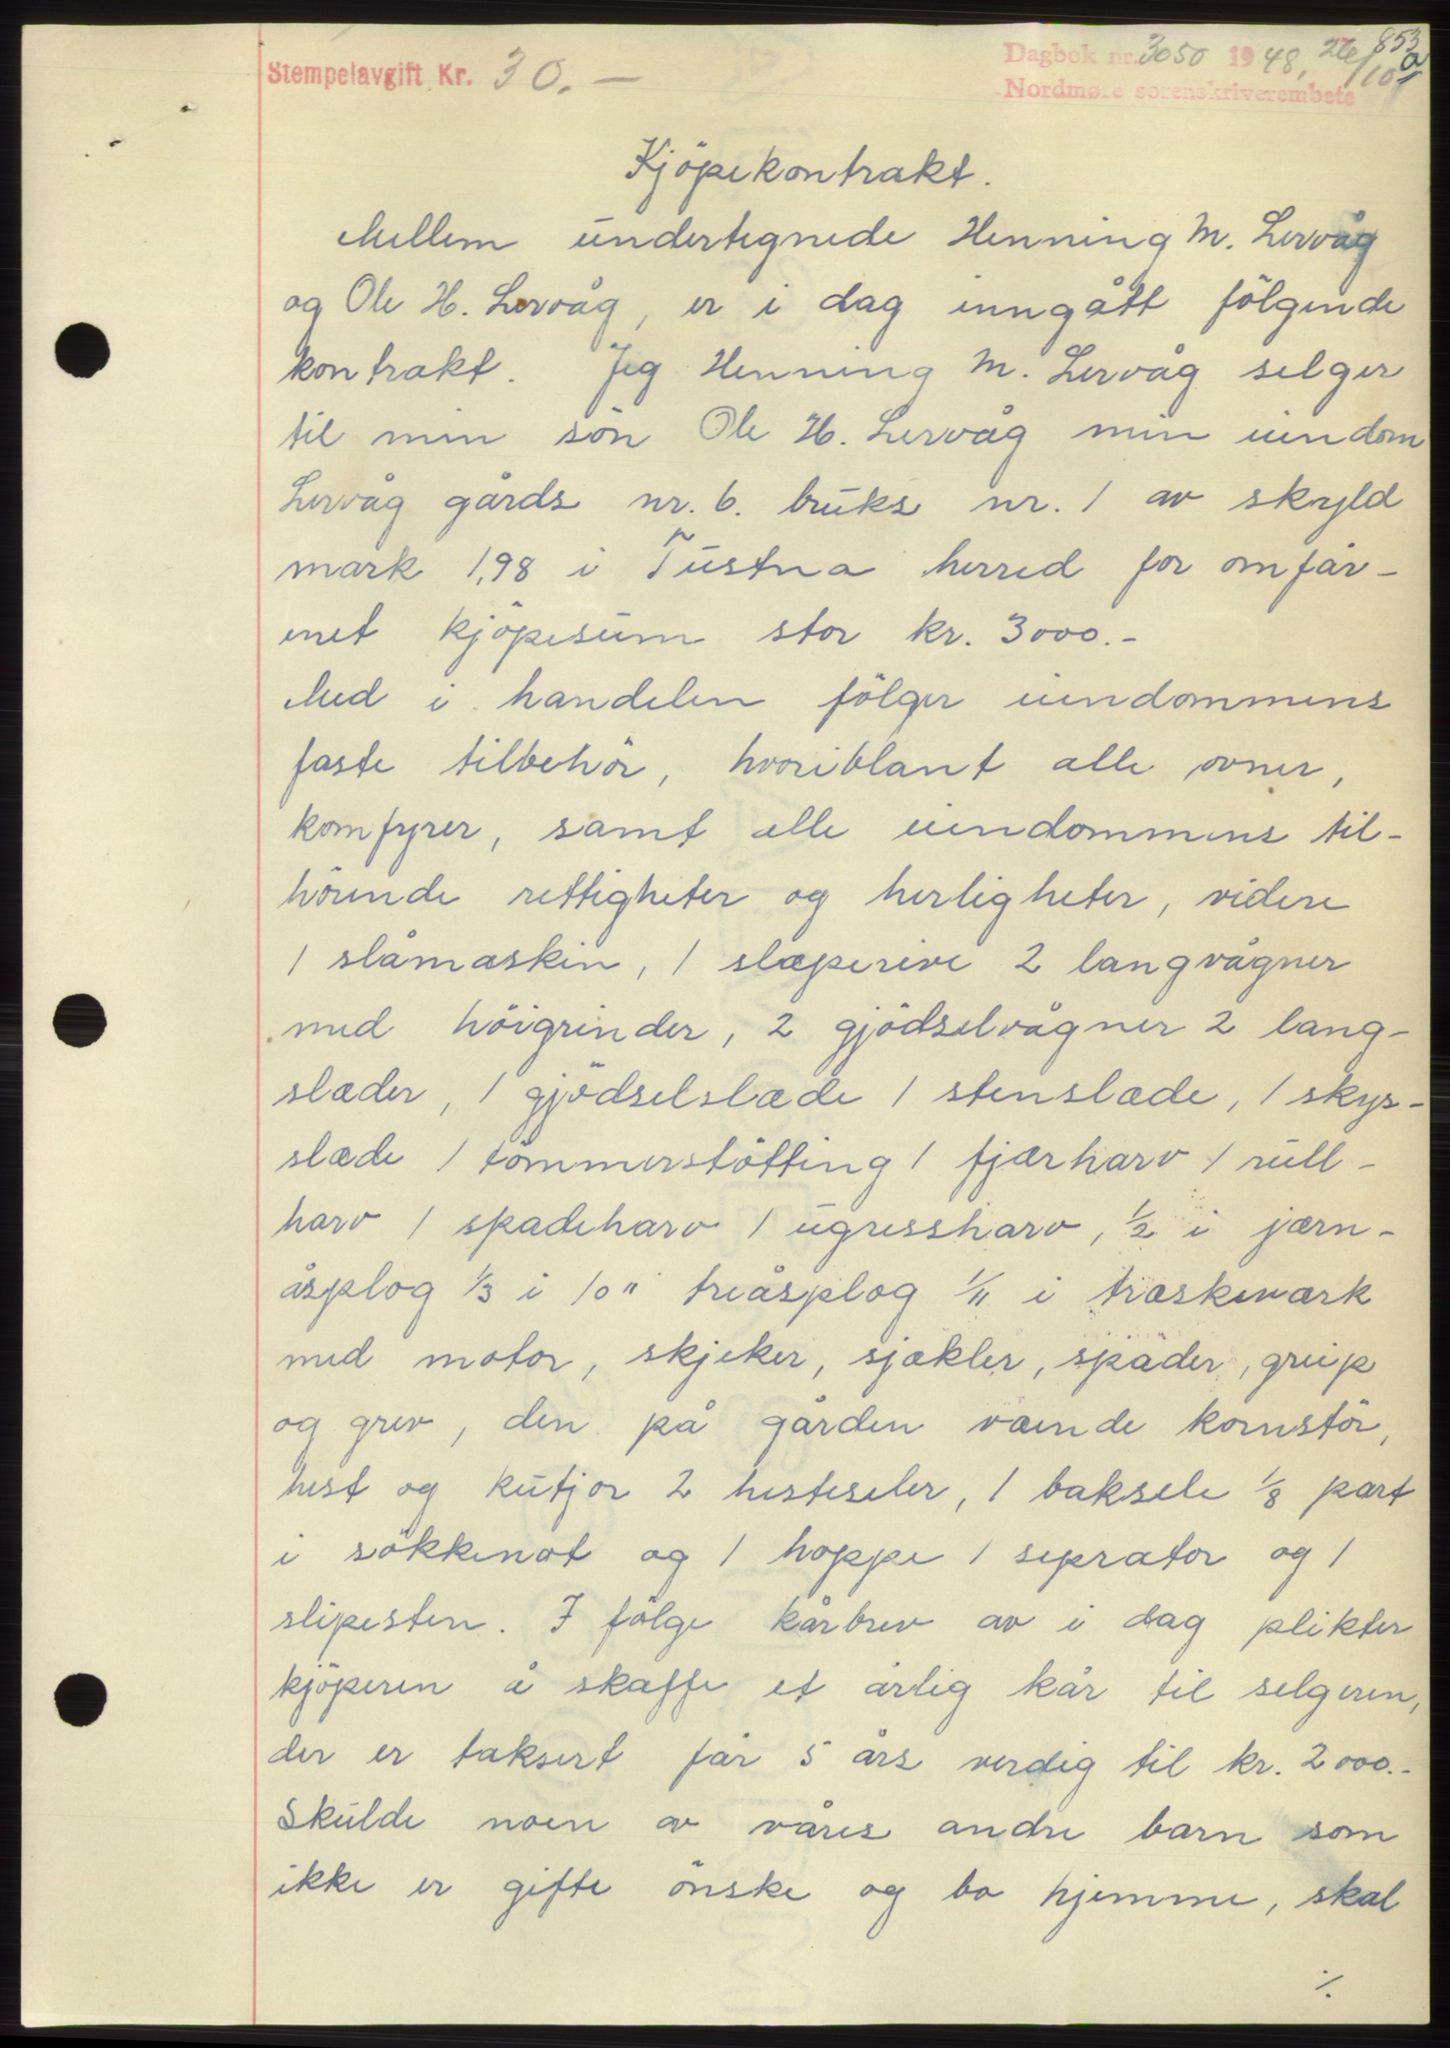 Stempelavgift Kr. 30.—
Dagbok nr. 3050 1948, 26/10
853
Nordmøre sorenskriverembete
Kjöpekontrakt.
Mellem undertegnede Henning M. Lervåg
og Ole H. Lervåg, er i dag inngått fölgende
kontrakt. Jeg Henning M. Lervåg selger
til min sön Ole H. Lervåg min eiendom
Lervåg gårds nr. 6. bruks nr. 1 av skyld
mark 1,98 i Tustna herred for omfor-
enet kjöpesum stor kr. 3000.-
Med i handelen fölger eiendommens
faste tilbehör, hvoriblant alle ovner,
komfyrer, samt alle eiendommens til-
hörende rettigheter og herligheter, videre
1 slåmaskin, 1 slæperive 2 langvågner
med höigrinder, 2 gjödselvågner 2 lang-
slæder, 1 gjödselslæde 1 stenslæde, 1 skys-
slæde 1 tömmerstötting 1 fjærharv 1 rull-
harv 1 spadeharv 1 ugressharv, 1/2 i jærn-
åsplog 1/3 i 10" treåsplog 1/11 i træskeværk
med motor, skjeker, sjækler, spader, greip
og grev, den på gården væende kornstör,
hest og kutjor 2 hesteseler, 1 baksele 1/8 part
i sökkenot og 1 hoppe 1 seprator og 1
slipesten. I fölge kårbrev av i dag plikter
kjöperen å skaffe et årlig kår til selgeren,
der er taksert får 5 års verdig til kr. 2000.-
Skulde noen av våres andre barn som
ikke er gifte önske og bo hjemme, skal
·/.